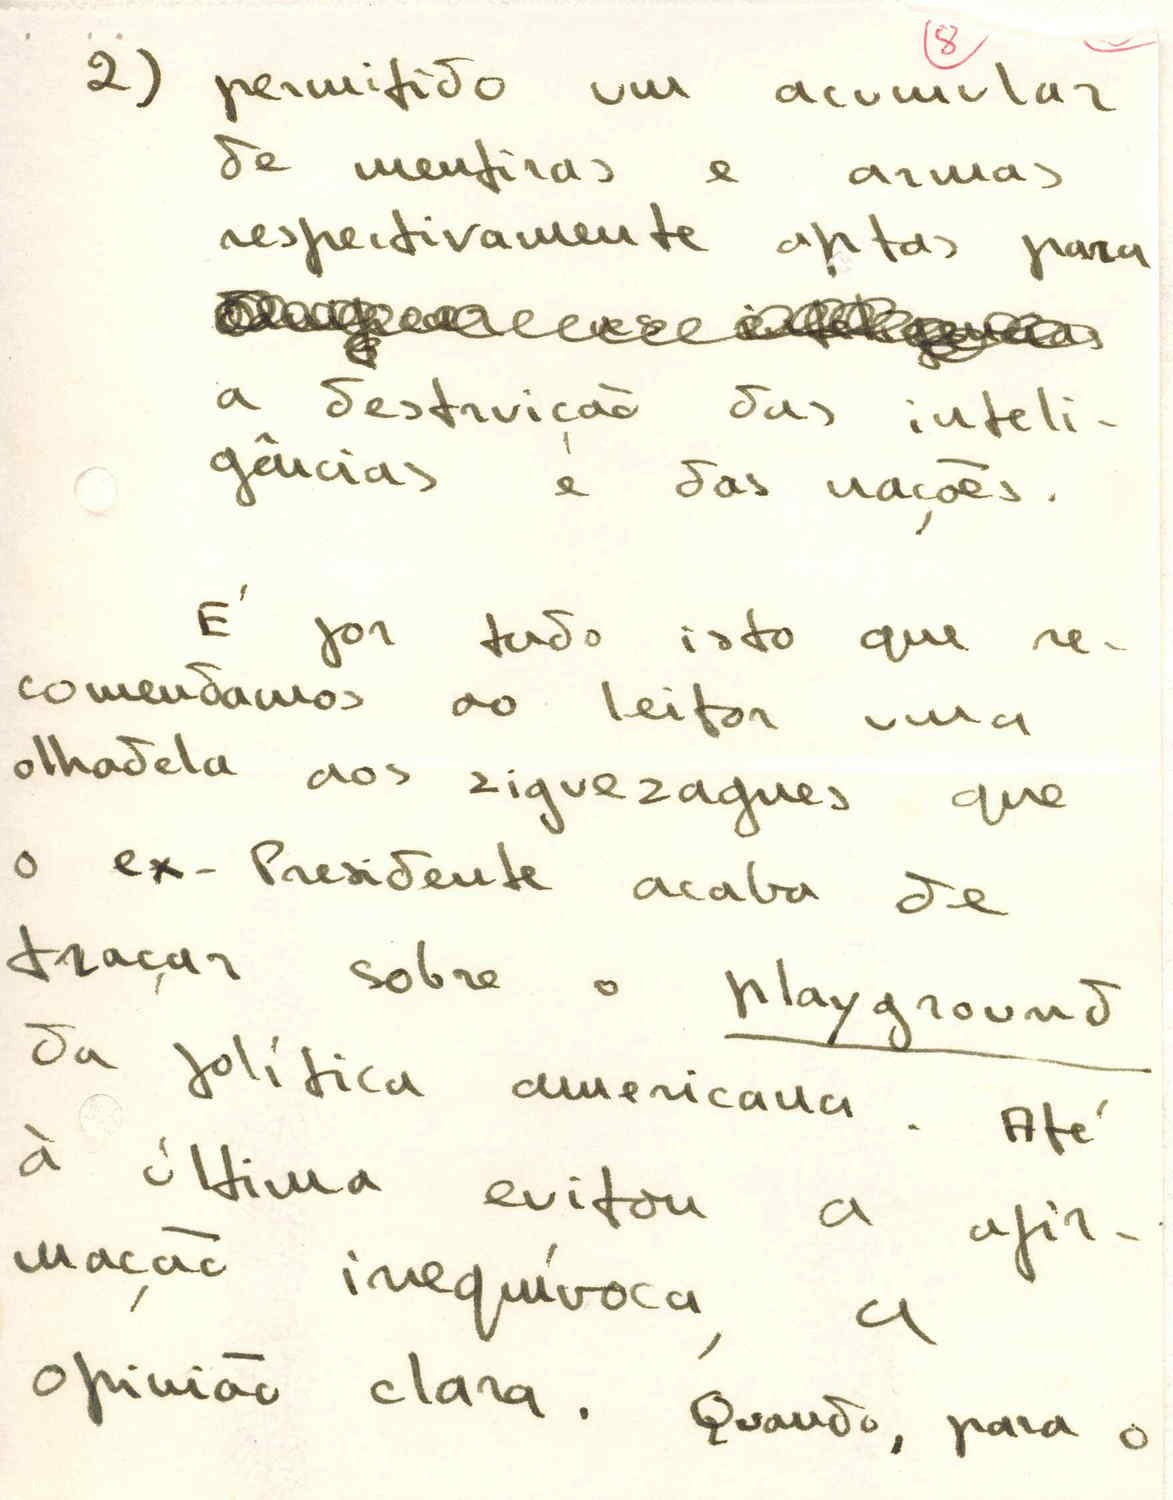 8
2) permitido um acumular
de mentiras e armas
respectivamente aptas para
a destruição das inteli-
gências e das nações.
É por tudo isto que re-
comendamos ao leitor uma
olhadela aos ziguezagues que
o ex-Presidente acaba de
traçar sobre o playground
da política americana. Até
à última evitou a afir-
mação inequívoca, a
opinião clara. Quando, para o